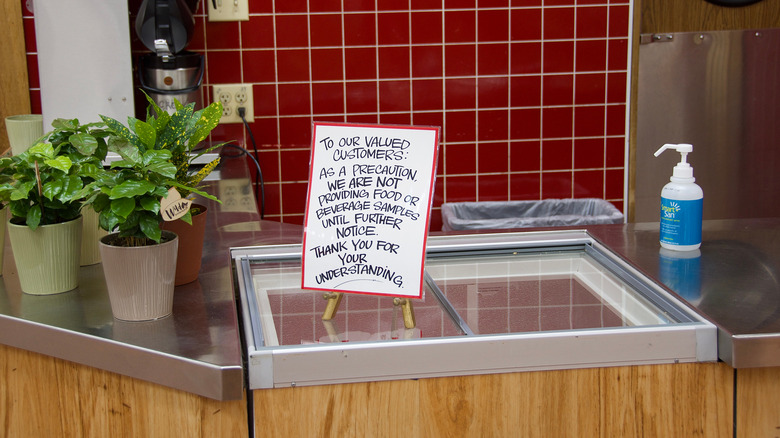 TO OUR VALUED
CUSTOMERS:
AS A PRECAUTION,
WE ARE NOT
PROVIDING FOOD OR
BEVERAGE SAMPLES
UNTIL FURTHER
NOTICE.
THANK YOU FOR
YOUR
UNDERSTANDING.